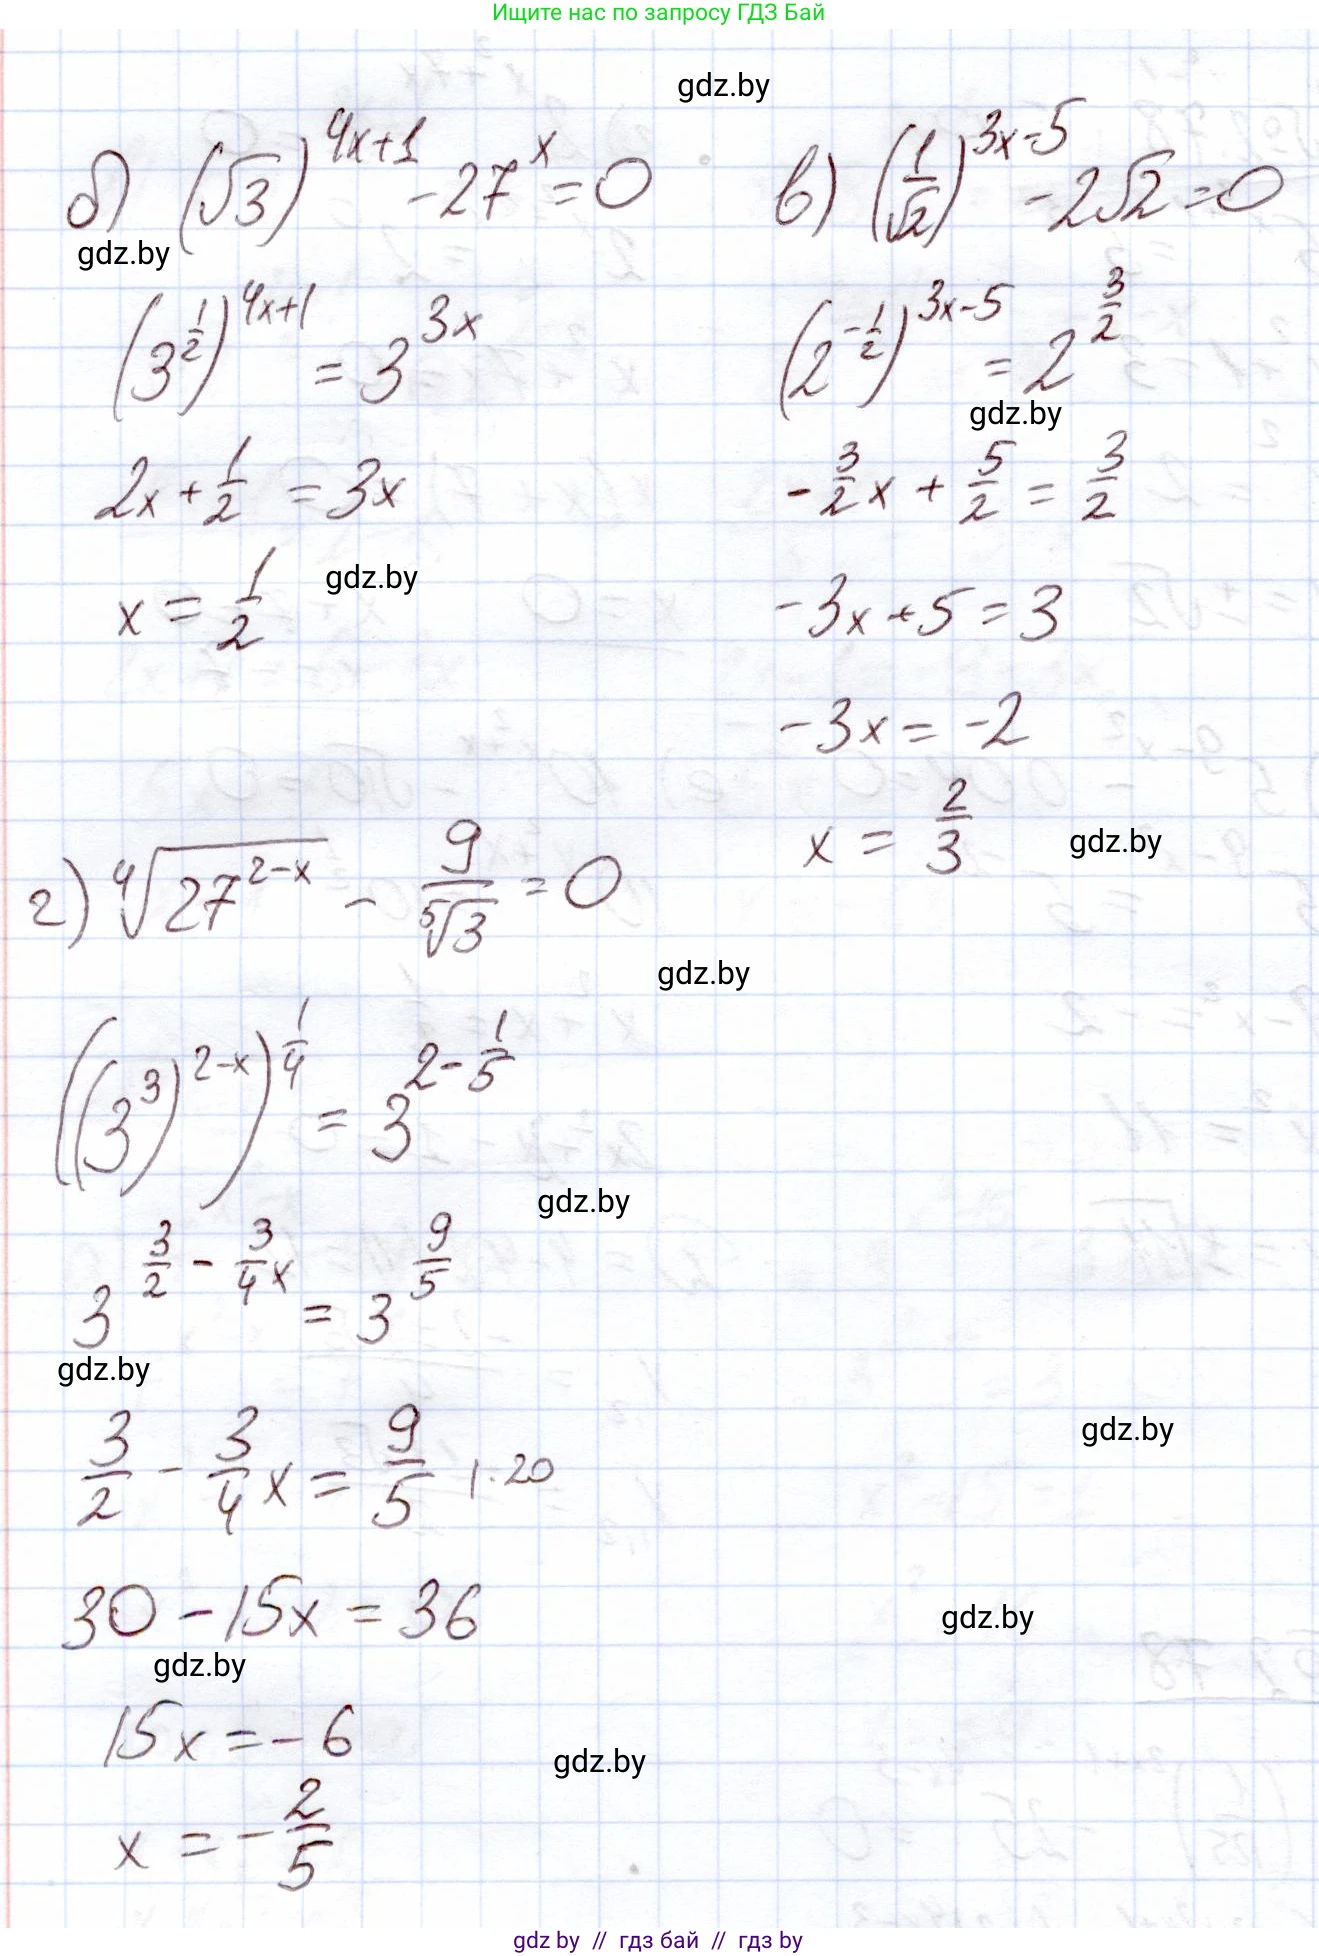 Ищите нас по запросу ГДЗ Бай
gdz.by
б) (√3)^(4x+1) - 27^x = 0
gdz.by
(3^(1/2))^(4x+1) = 3^(3x)
2x + 1/2 = 3x
x = 1/2
gdz.by
в) (1/√2)^(3x-5) - 2√2 = 0
(2^(-1/2))^(3x-5) = 2^(3/2)
gdz.by
- 3/2 x + 5/2 = 3/2
-3x + 5 = 3
-3x = -2
x = 2/3
gdz.by
г) ⁴√(27^(2-x)) - 9/⁵√3 = 0
gdz.by
((3^3)^(2-x))^(1/4) = 3^(2-1/5)
gdz.by
3^(3/2 - 3/4 x) = 3^(9/5)
gdz.by
3/2 - 3/4 x = 9/5 | · 20
gdz.by
30 - 15x = 36
gdz.by
gdz.by
15x = -6
gdz.by
x = - 2/5
gdz by // гдз бай // гдз by